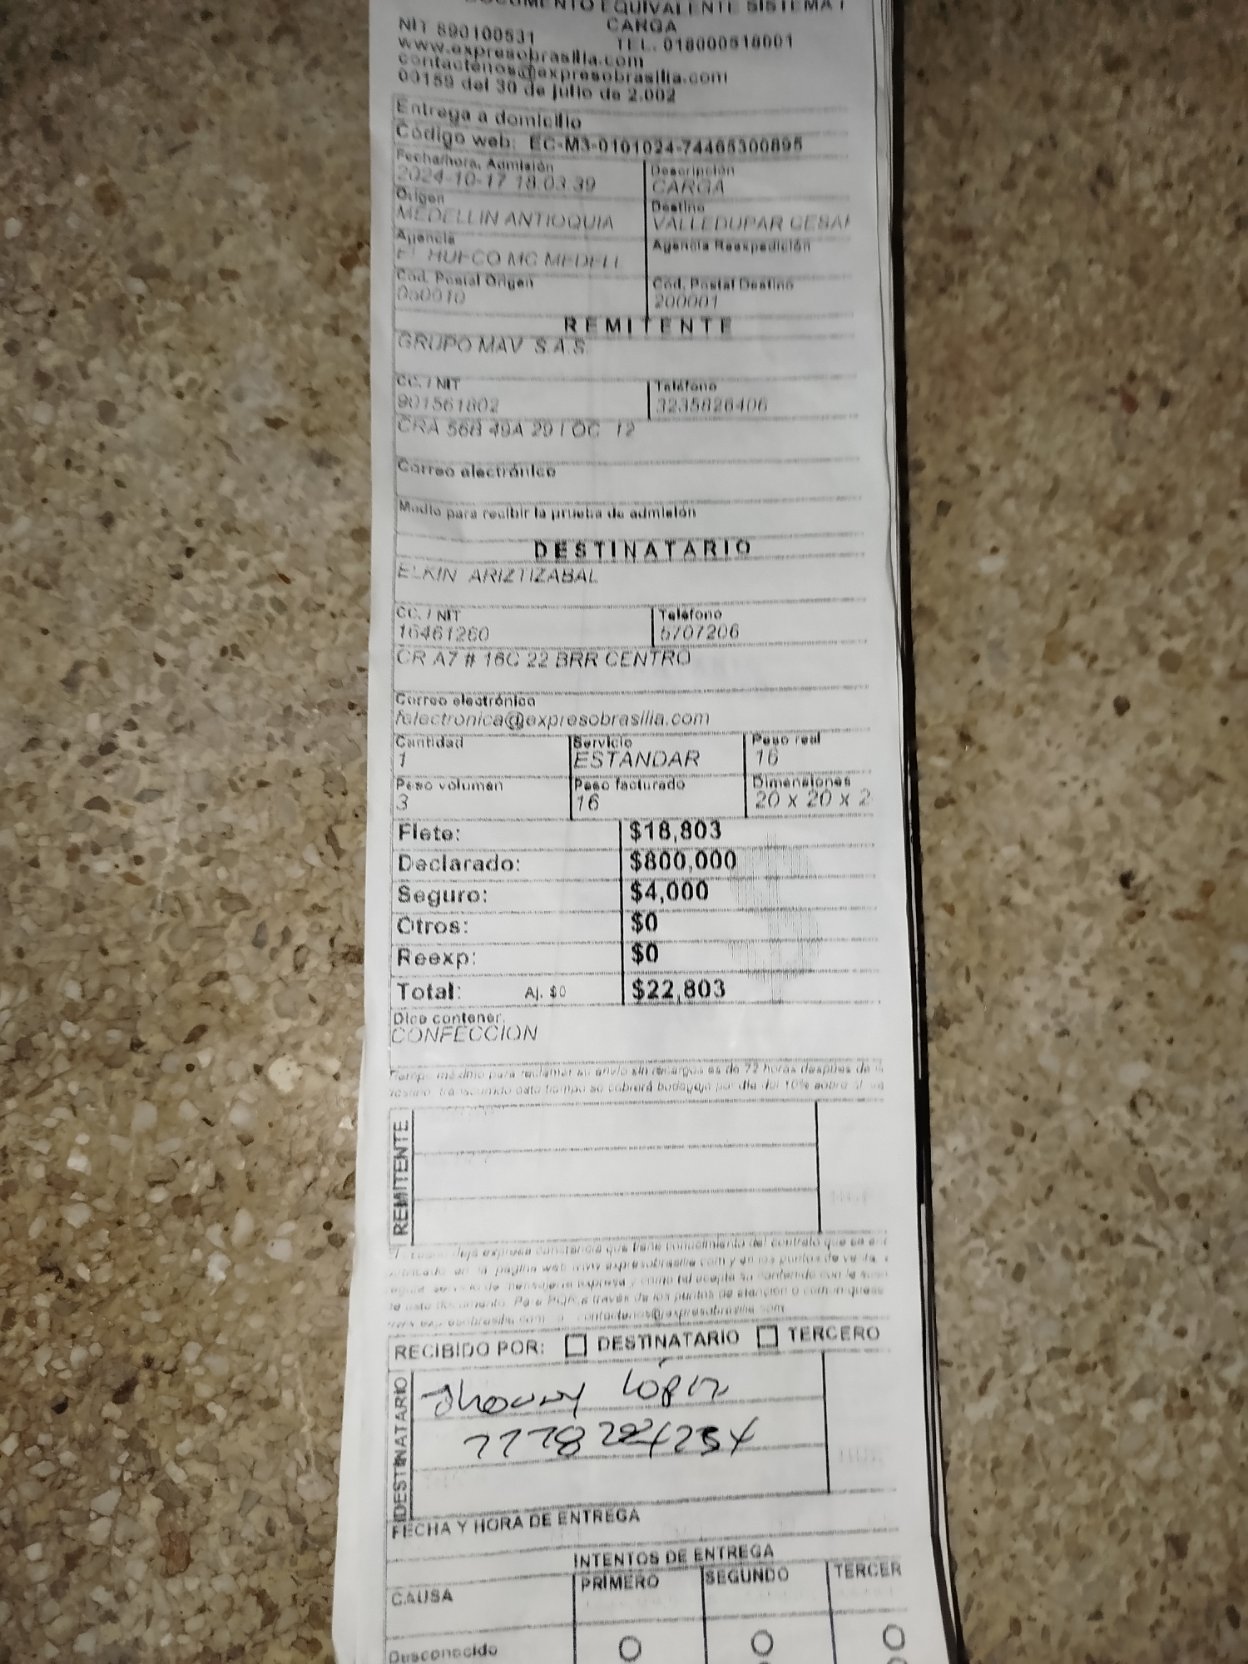 DOCUMENTO EQUIVALENTE SISTEMA
CARGA
NIT 890100531 TEL. 018000518001
www.expresobrasilia.com
contactenos@expresobrasilia.com
00159 del 30 de julio de 2.002
Entrega a domicilio
Código web: EC-M3-0101024-74465300895
Fecha/hora, Admisión Descripción
2024-10-17 18:03:39 CARGA
Origen Destino
MEDELLIN ANTIOQUIA VALLEDUPAR CESAR
Agencia Agencia Reexpedición
EL HUECO MC MEDELL
Cod. Postal Origen Cód. Postal Destino
050010 200001
REMITENTE
GRUPO MAV S.A.S.
CC. / NIT Teléfono
901561802 3235826406
CRA 56B 49A 29 LOC 12
Correo electrónico
Medio para recibir la prueba de admisión
DESTINATARIO
ELKIN ARIZTIZABAL
CC. / NIT Teléfono
16461260 5707206
CR A7 # 16C 22 BRR CENTRO
Correo electrónico
felectronica@expresobrasilia.com
Cantidad Servicio Peso real
1 ESTANDAR 16
Peso volumen Peso facturado Dimensiones
3 16 20 x 20 x 2
Flete: $18,803
Declarado: $800,000
Seguro: $4,000
Otros: $0
Reexp: $0
Total: Aj. $0 $22,803
Dice contener.
CONFECCION
Tiempo máximo para reclamar su envío sin recargos es de 72 horas después de
transcurrido este tiempo se cobrará bodegaje por día del 10% sobre el
REMITENTE
expresa constancia que tiene conocimiento del contrato que se
publicado en la página web www.expresobrasilia.com y en los puntos de venta,
servicio de mensajería expresa y como tal acepta su contenido con la
este documento. Para PQR a través de los puntos de atención o comuníquese
contactenos@expresobrasilia.com
RECIBIDO POR: DESTINATARIO TERCERO
DESTINATARIO
Jhonny López
FECHA Y HORA DE ENTREGA
INTENTOS DE ENTREGA
CAUSA PRIMERO SEGUNDO TERCER
Desconocido